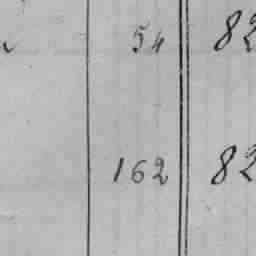 54 82
162 82